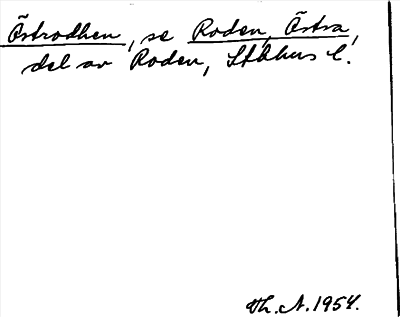 Östrodhen, se Roden, Östra,
del av Roden, Sthlms l.
Th. A. 1954.